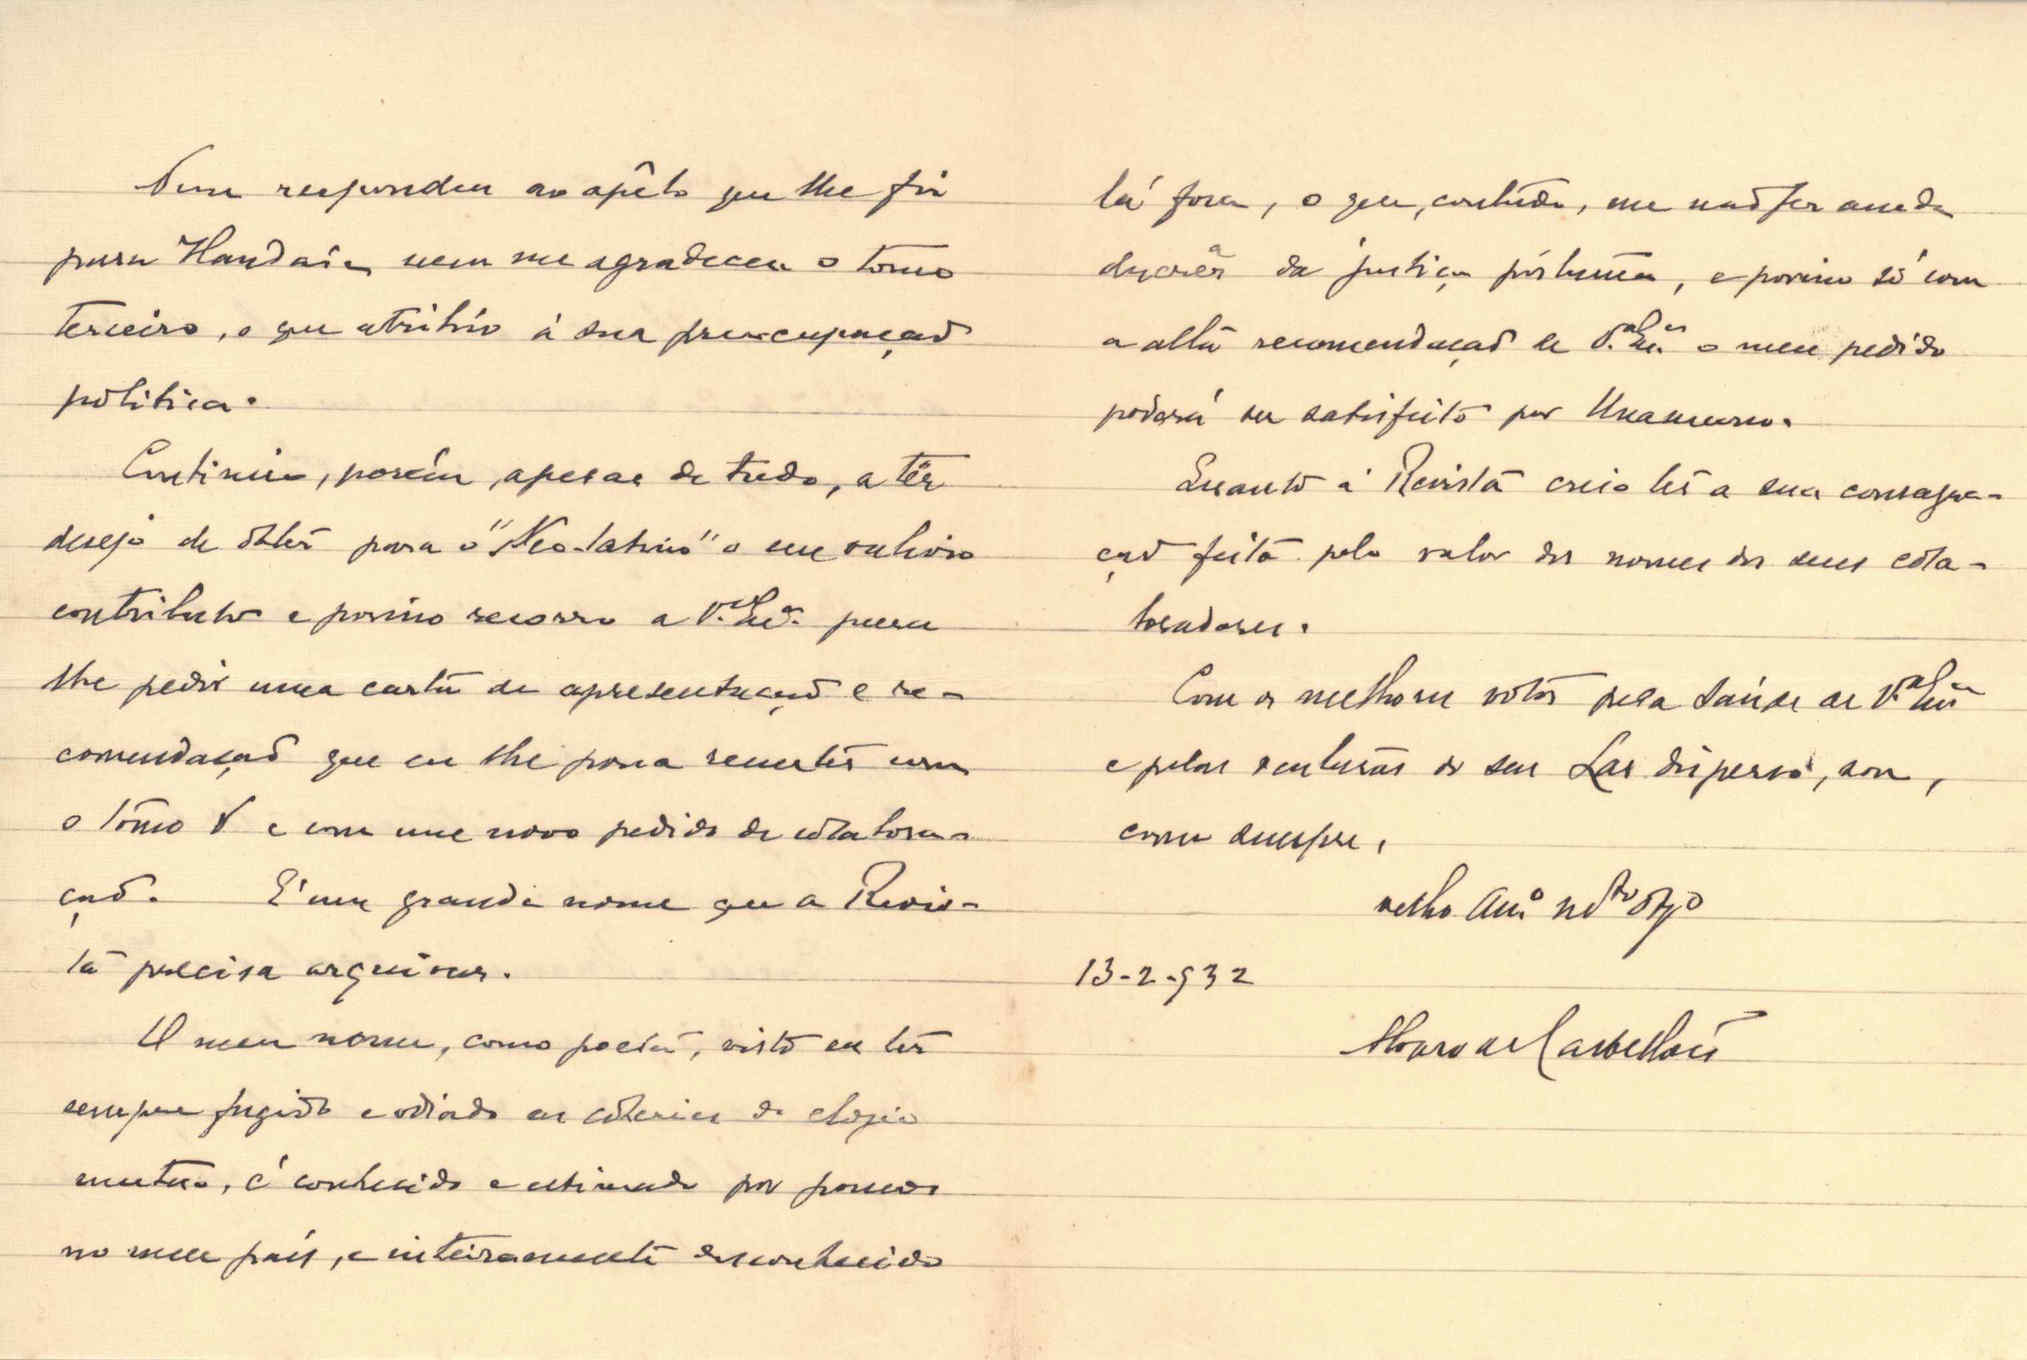 Nem respondeu ao apêlo que lhe fiz
para Handaia nem me agradeceu o tomo
terceiro, o que atribúo á sua preocupação
politica.
Continúo, porém, apesar de tudo, a têr
desejo de obter para o "Neo-latino" o seu valioso
contributo e por isso recorro a V. Exª. para
lhe pedir uma carta de apresentação e re-
comendação que eu lhe possa remeter com
o tômo V e com um novo pedido de colabora-
ção. E' um grande nome que a Revis-
ta precisa arquivar.
O meu nome, como poeta, visto eu ter
sempre fugido e odiado as coteries do elogio
mutuo, é conhecido e estimado por poucos
no meu país, e inteiramente desconhecido
lá fora, o que, contudo, me não faz ainda
descrêr da justiça póstuma, e por isso só com
a alta recomendação de V. Exª o meu pedido
poderá ser satisfeito por Unamuno.
Quanto á Revista creio ter a sua consagra-
ção feita pelo valor dos nomes dos seus cola-
boradores.
Com os melhores votos pela saúde de V. Exª
e pelas venturas do seu Lar disperso, sou,
como sempre,
velho Amº
13-2-932
Alvaro de Castellões